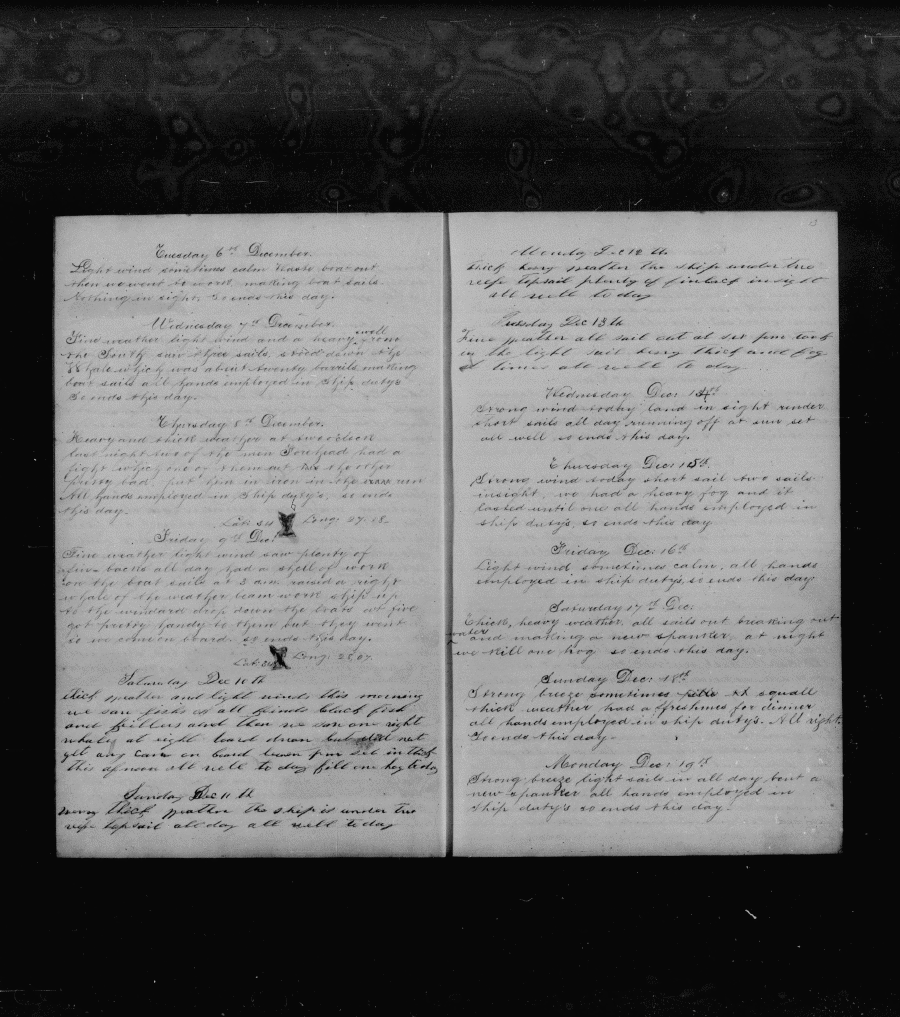 Tuesday 6th December.
Light wind sometimes calm Waste boat out
then we went to work making boat sails
Nothing in sight. So ends this day.
Wednesday 7th December.
Fine weather light wind and a heavy swell from
the South saw three sails, stood down the
Whale which was about twenty barrils making
boat sails all hands employed in ship duty's
So ends this day.
Thursday 8th December.
Heavy and thick weather at two o'clock
last night two of the men Forehead had a
fight which one of them cut the other
pretty bad, put him in iron in the run
All hands employed in Ship duty's, so ends
this day.
Lat: 34 Long: 27.18
Friday 9th Dec:
Fine weather light wind saw plenty of
fin-backs all day had a spell of work
on the boat sails at 3 a.m. raised a right
whale of the weather beam work ship up
to the windard drop down the boats at five
got pretty handy to them but they went
so we come on board. so ends this day.
Lat: Long: 25.07.
Saturday Dec 10 th
thick weather and light winds this morning
we saw fishs of all kinds black fish
and killers and then we saw one right
whale at eight lourd down but did not
get any came on board
this afnoon all well to day kill one hog to day
Sunday Dec 11 th
very thick weather the ship is under two
reep topsail all day all well to day
13
Monday Dec 12 th
thick heavy weather the ship under two
reefe topsail plenty of finback insight
all well to day
Tuesday Dec 13 th
Fine weather all sail out at six p.m. took
in the light sail very thick and fog
at times all well to day
Wednesday Dec: 14th
Strong wind today land in sight render
short sails all day running off at sun set
all well so ends this day.
Thursday Dec: 15th.
Strong wind today short sail two sails
insight, we had a heavy fog and it
lasted until one all hands employed in
ship duty's, so ends this day
Friday Dec: 16th
Light wind sometimes calm, all hands
employed in ship duty's, so ends this day:
Saturday 17th Dec:
Thick, heavy weather, all sails out breaking out
water and making a new spanker, at night
we kill one hog so ends this day.
Sunday Dec: 18th
Strong breeze sometimes at squall
thick weather had a freshmes for dinner
all hands employed in ship duty's. All right
So ends this day.
Monday Dec: 19th
Strong breeze light sails in all day bent a
new spanker all hands employed in
Ship duty's so ends this day.